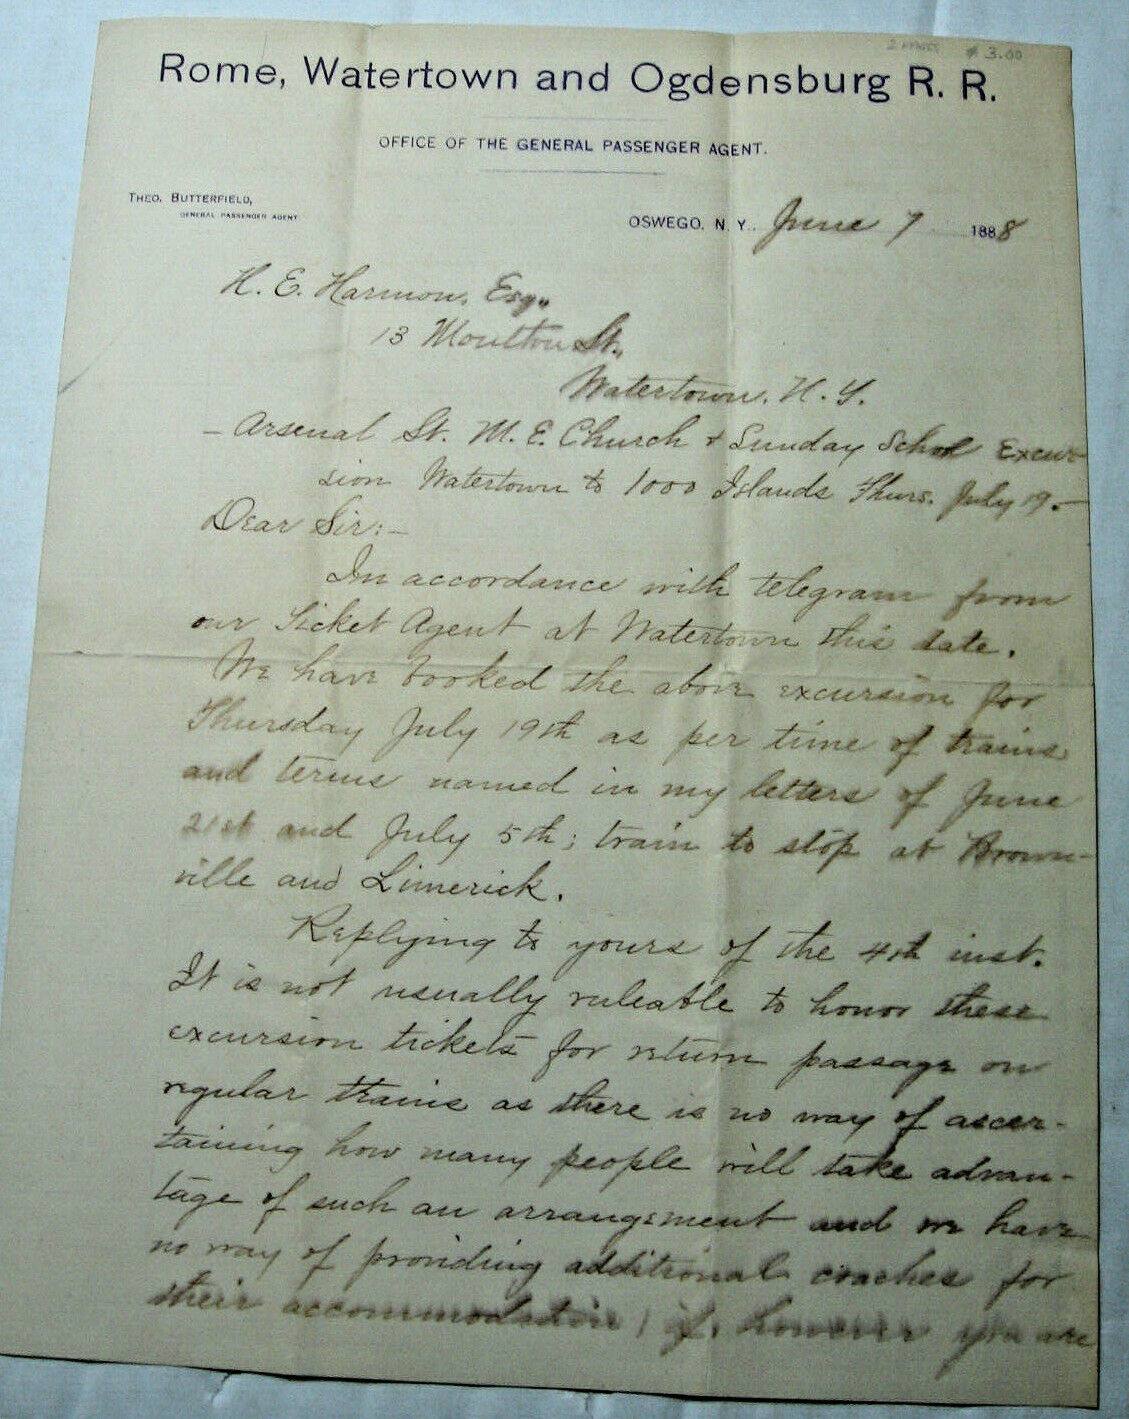 2 pages $3.00
Rome, Watertown and Ogdensburg R. R.
OFFICE OF THE GENERAL PASSENGER AGENT.
THEO. BUTTERFIELD,
GENERAL PASSENGER AGENT
OSWEGO, N. Y., June 7 1888
H. E. Harmon, Esq.,
13 Moulton St.,
Watertown, N. Y.
- Arsenal St. M. E. Church & Sunday School Excur-
sion Watertown to 1000 Islands Thurs. July 19. -
Dear Sir:-
In accordance with telegram from
our Ticket Agent at Watertown this date.
We have booked the above excursion for
Thursday July 19th as per time of trains
and terms named in my letters of June
21st and July 5th; train to stop at Brown-
ville and Limerick.
Replying to yours of the 4th inst.
It is not usually ruleable to honor these
excursion tickets for return passage on
regular trains as there is no way of ascer-
taining how many people will take advan-
tage of such an arrangement and we have
no way of providing additional coaches for
their accommodation; if, however you are